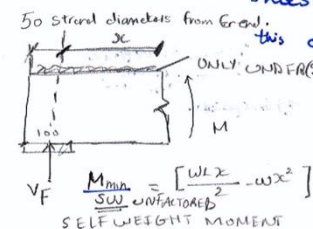 50 strand diameters from Gr end.
this
x
ONLY UNDER
100
M
VF
Mmin / SW UNFACTORED = [wLx/2 - wx²]
SELF WEIGHT MOMENT